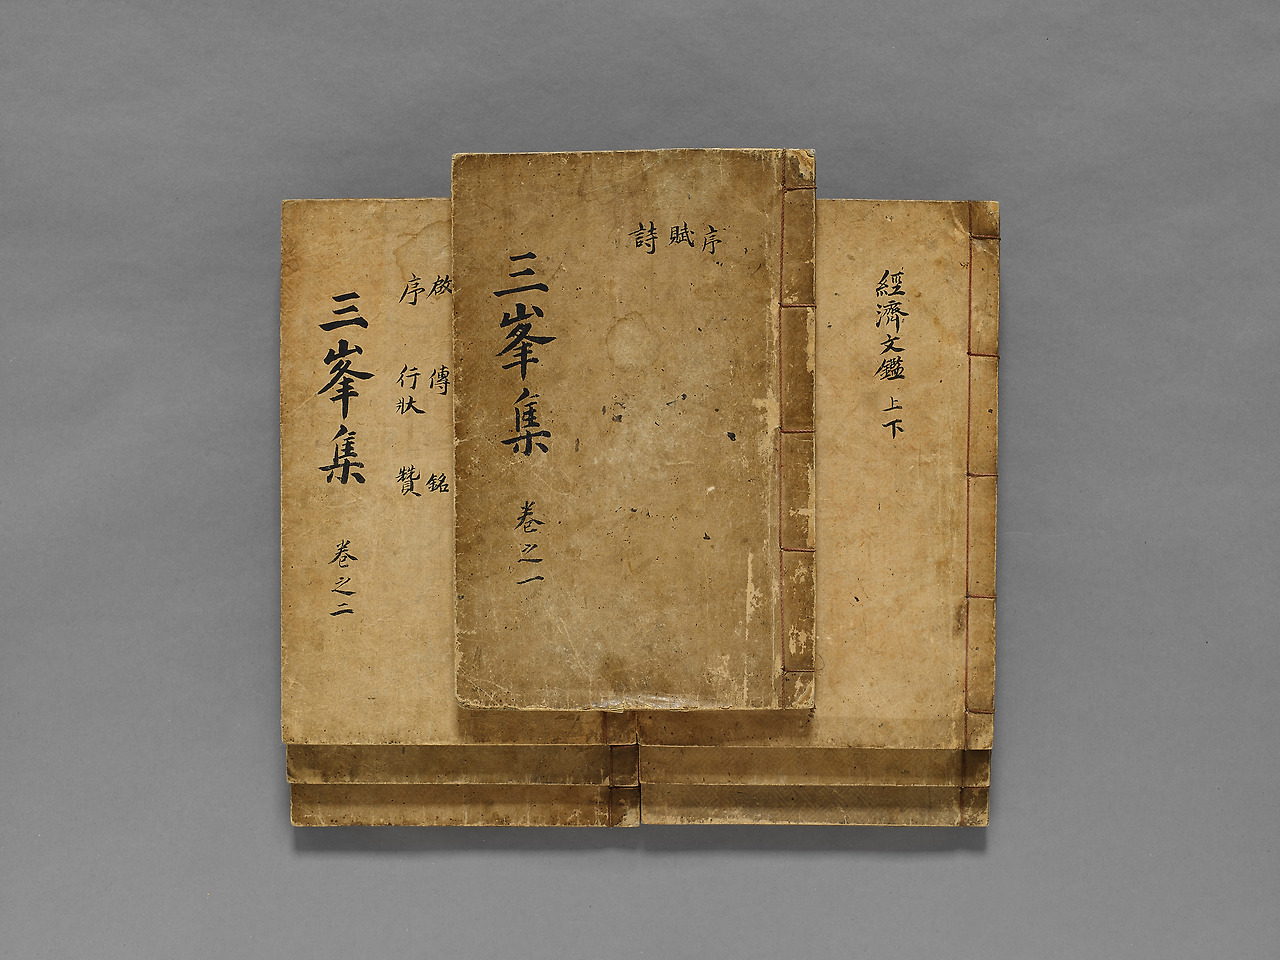 三峯集 卷之一
序
賦
詩
三峯集 卷之二
啟 傳 銘
序 行狀 贊
經濟文鑑 上下